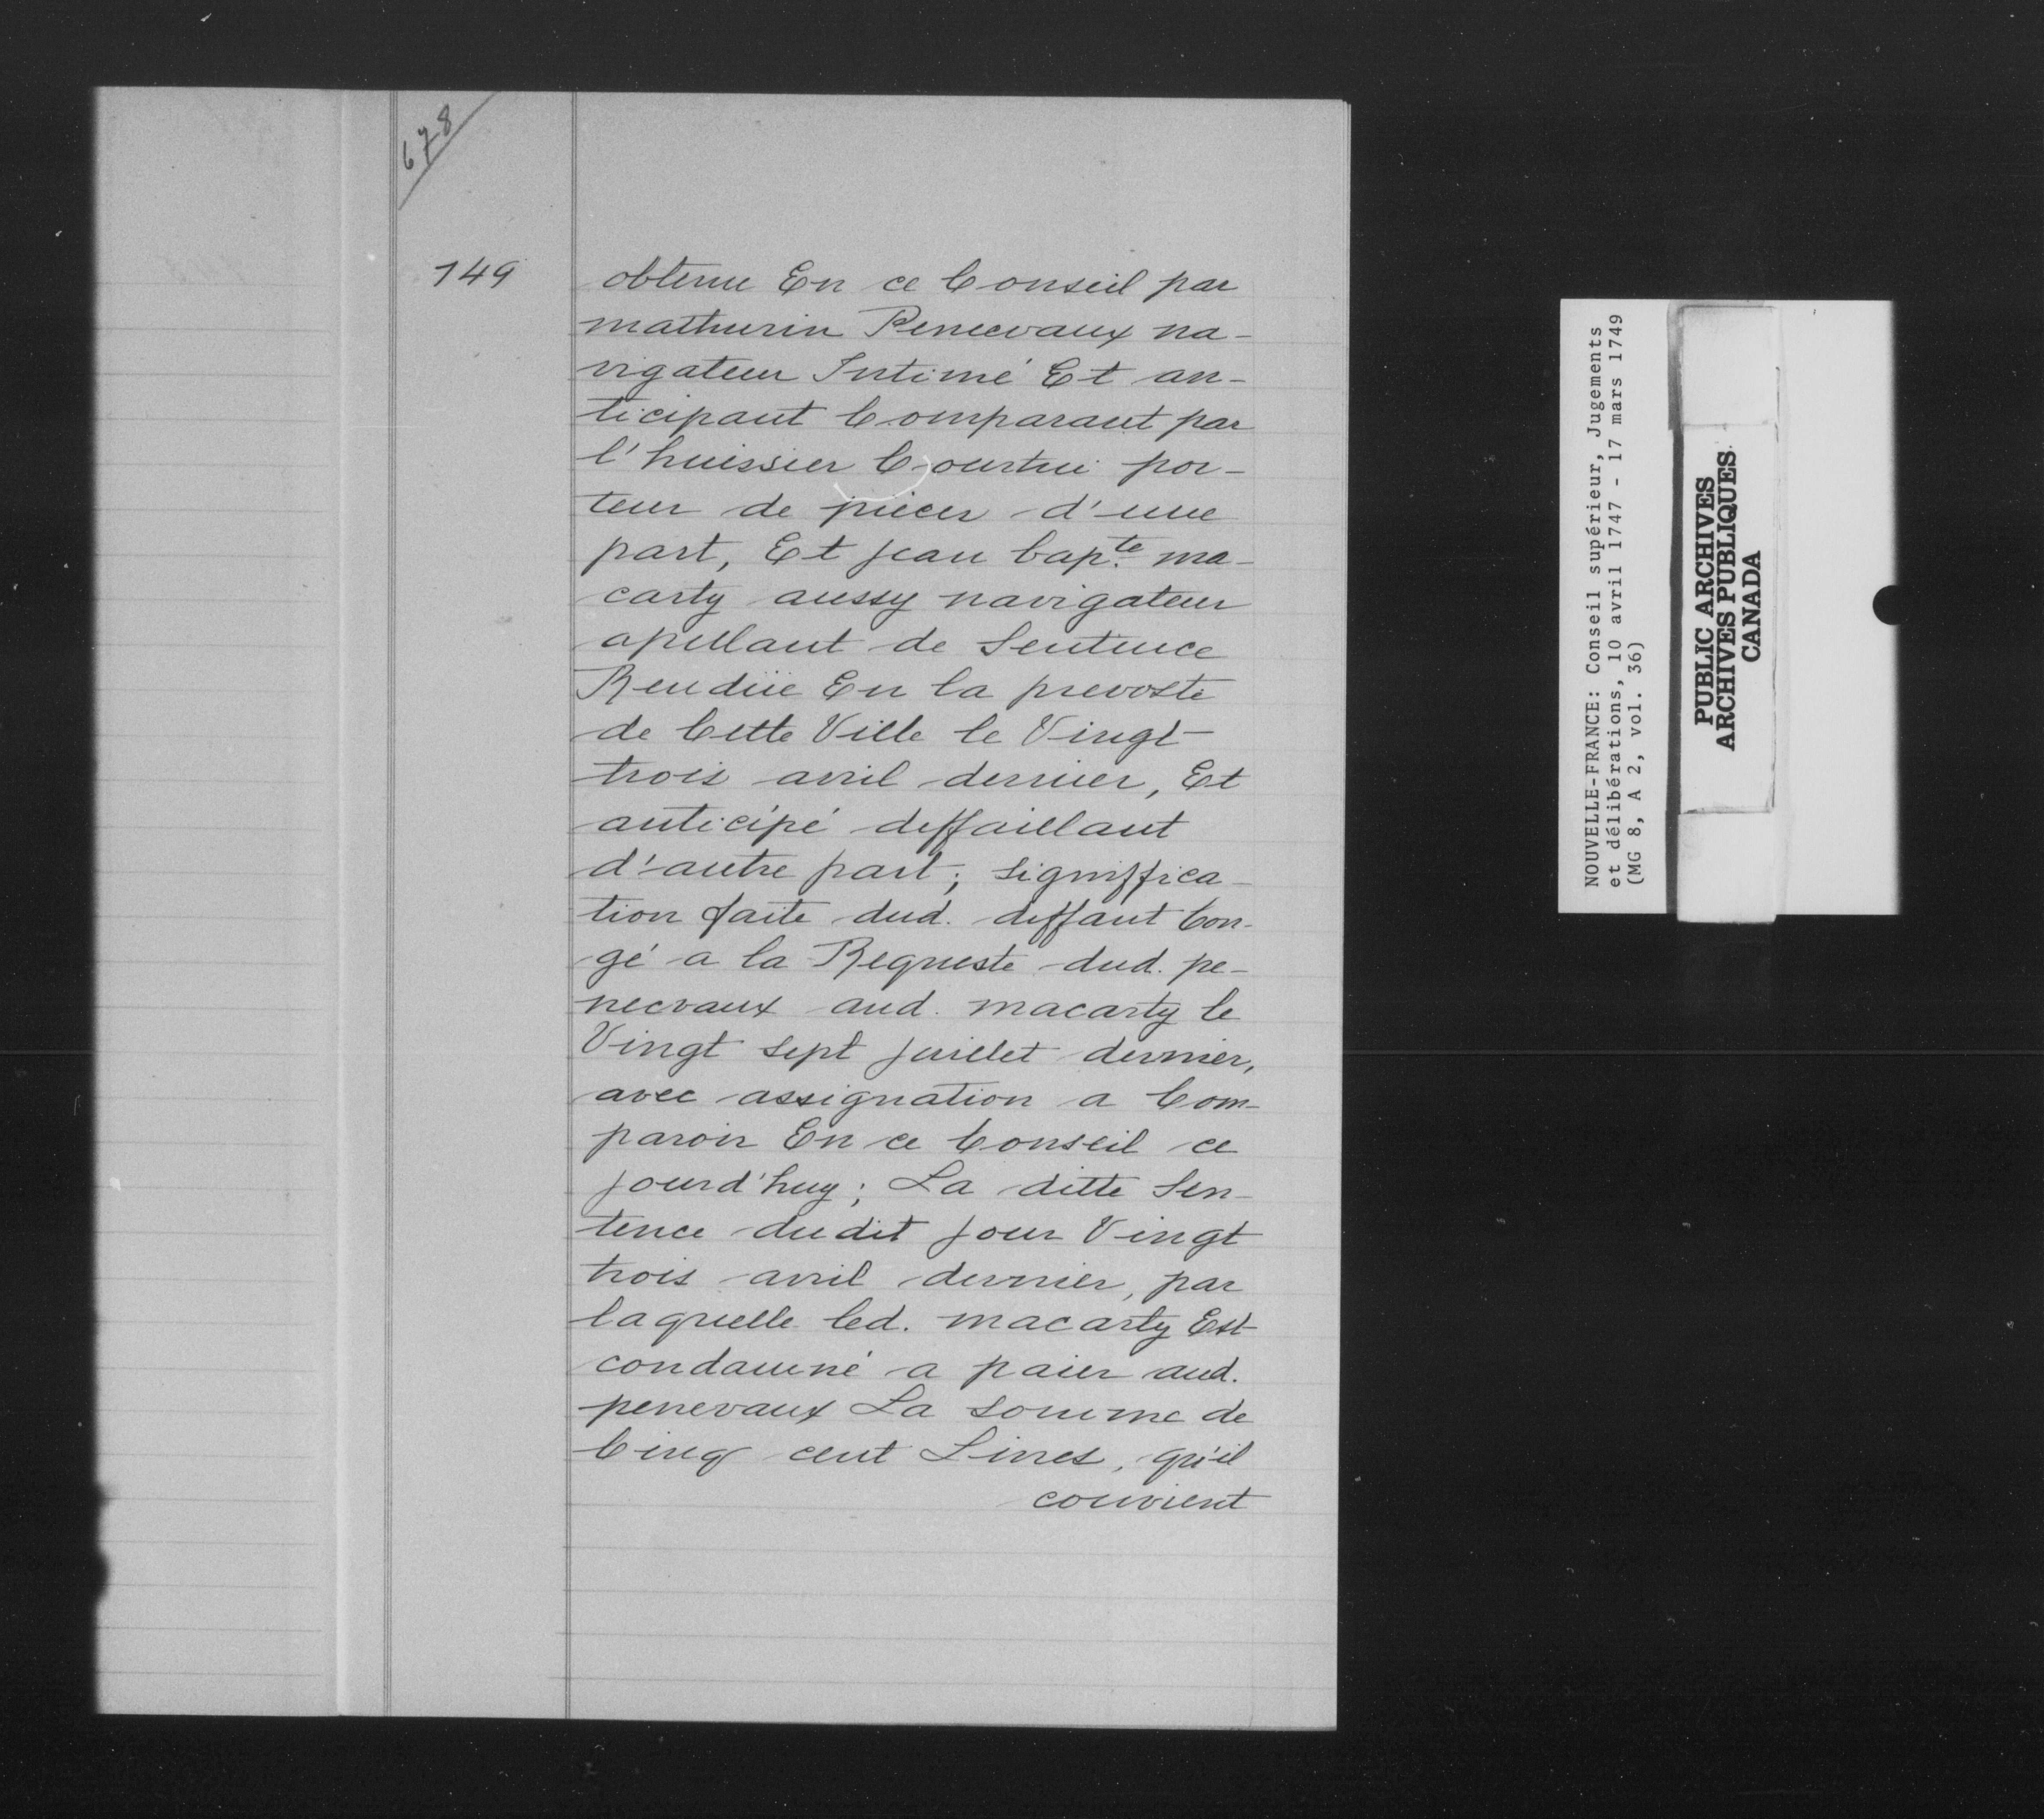 678
149
obtenu En ce Conseil par
mathurin Penecvaux na-
vigateur Intimé Et an-
ticipant Comparant par
l'huissier Courtin por-
teur de pieces d'une
part, Et jean bap.te ma-
carty aussy navigateur
apellant de Sentence
Rendüe En la prevosté
de Cette Ville le Vingt
trois avril dernier, Et
anticipé deffaillant
d'autre part; signiffica-
tion faite dud. deffaut Con-
gé a la Requeste dud. pe-
necvaux aud. macarty le
Vingt sept juillet dernier,
avec assignation a Com-
paroir En ce Conseil ce
jourd'huy; La ditte Sen-
tence dudit jour Vingt
trois avril dernier, par
laquelle led. macarty Est
condamné a paier aud.
penevaux La somme de
Cinq cent Livres, qu'il
convient
NOUVELLE-FRANCE: Conseil supérieur, Jugements
et délibérations, 10 avril 1747 - 17 mars 1749
(MG 8, A 2, vol. 36)
PUBLIC ARCHIVES
ARCHIVES PUBLIQUES
CANADA